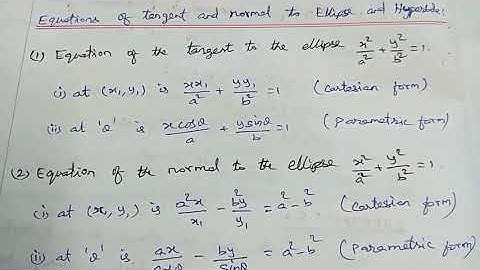 Equations of tangent and normal to Ellipse and Hyperbola.
(1) Equation of the tangent to the ellipse x²/a² + y²/b² = 1.
(i) at (x₁, y₁) is xx₁/a² + yy₁/b² = 1 (Cartesian form)
(ii) at 'θ' is x cosθ/a + y sinθ/b = 1 (Parametric form)
(2) Equation of the normal to the ellipse x²/a² + y²/b² = 1.
(i) at (x₁, y₁) is a²x/x₁ - b²y/y₁ = a² - b² (Cartesian form)
(ii) at 'θ' is ax/cosθ - by/sinθ = a² - b² (Parametric form)